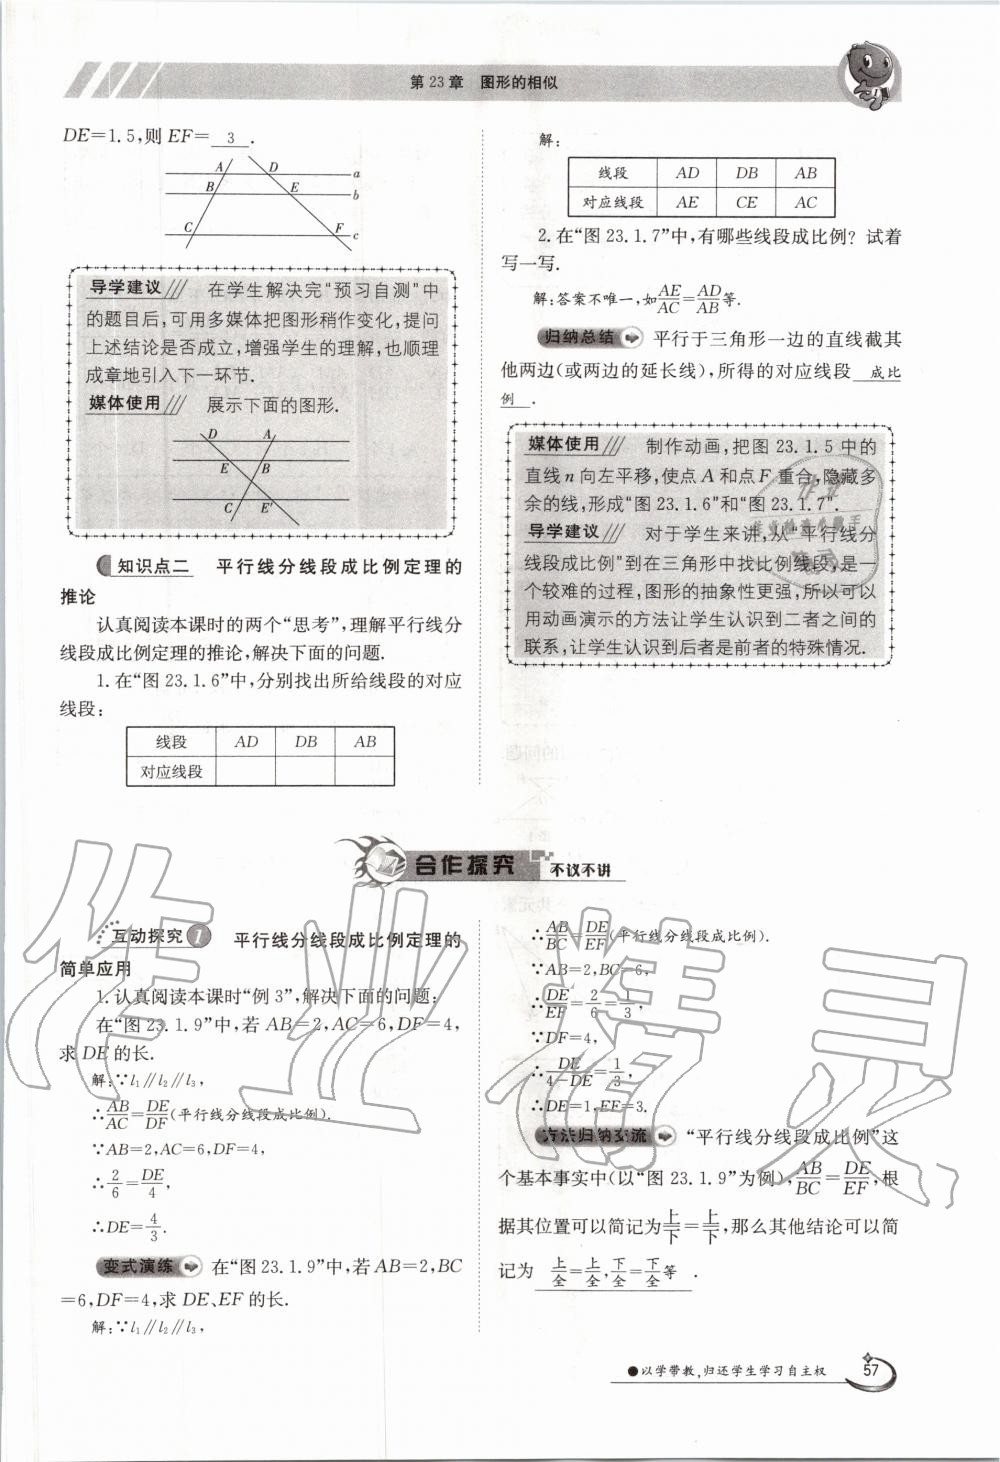 第23章　图形的相似
DE=1.5,则 EF= 3 .
A D a
B E b
C F c
导学建议/// 在学生解决完“预习自测”中
的题目后,可用多媒体把图形稍作变化,提问
上述结论是否成立,增强学生的理解,也顺理
成章地引入下一环节.
媒体使用/// 展示下面的图形.
D A
E B
C E'
知识点二　平行线分线段成比例定理的
推论
认真阅读本课时的两个“思考”,理解平行线分
线段成比例定理的推论,解决下面的问题.
1.在“图 23.1.6”中,分别找出所给线段的对应
线段:
线段 AD DB AB
对应线段
解:
线段 AD DB AB
对应线段 AE CE AC
2.在“图 23.1.7”中,有哪些线段成比例? 试着
写一写.
解:答案不唯一,如AE/AC=AD/AB等.
归纳总结 平行于三角形一边的直线截其
他两边(或两边的延长线),所得的对应线段 成比
例 .
媒体使用/// 制作动画,把图 23.1.5 中的
直线 n 向左平移,使点 A 和点 F 重合,隐藏多
余的线,形成“图 23.1.6”和“图 23.1.7”.
导学建议/// 对于学生来讲,从“平行线分
线段成比例”到在三角形中找比例线段,是一
个较难的过程,图形的抽象性更强,所以可以
用动画演示的方法让学生认识到二者之间的
联系,让学生认识到后者是前者的特殊情况.
合作探究 不议不讲
互动探究 1 平行线分线段成比例定理的
简单应用
1.认真阅读本课时“例 3”,解决下面的问题:
在“图 23.1.9”中,若 AB=2,AC=6,DF=4,
求 DE 的长.
解:∵l₁∥l₂∥l₃,
∴AB/AC=DE/DF(平行线分线段成比例).
∵AB=2,AC=6,DF=4,
∴2/6=DE/4,
∴DE=4/3.
变式演练 在“图 23.1.9”中,若 AB=2,BC
=6,DF=4,求 DE、EF 的长.
解:∵l₁∥l₂∥l₃,
∴AB/BC=DE/EF(平行线分线段成比例).
∵AB=2,BC=6,
∴DE/EF=2/6=1/3,
∵DF=4,
∴DE/4-DE=1/3,
∴DE=1,EF=3.
方法归纳交流 “平行线分线段成比例”这
个基本事实中(以“图 23.1.9”为例),AB/BC=DE/EF,根
据其位置可以简记为上/下=上/下,那么其他结论可以简
记为 上/全=上/全,下/全=下/全等 .
●以学带教,归还学生学习自主权
57
作业精灵